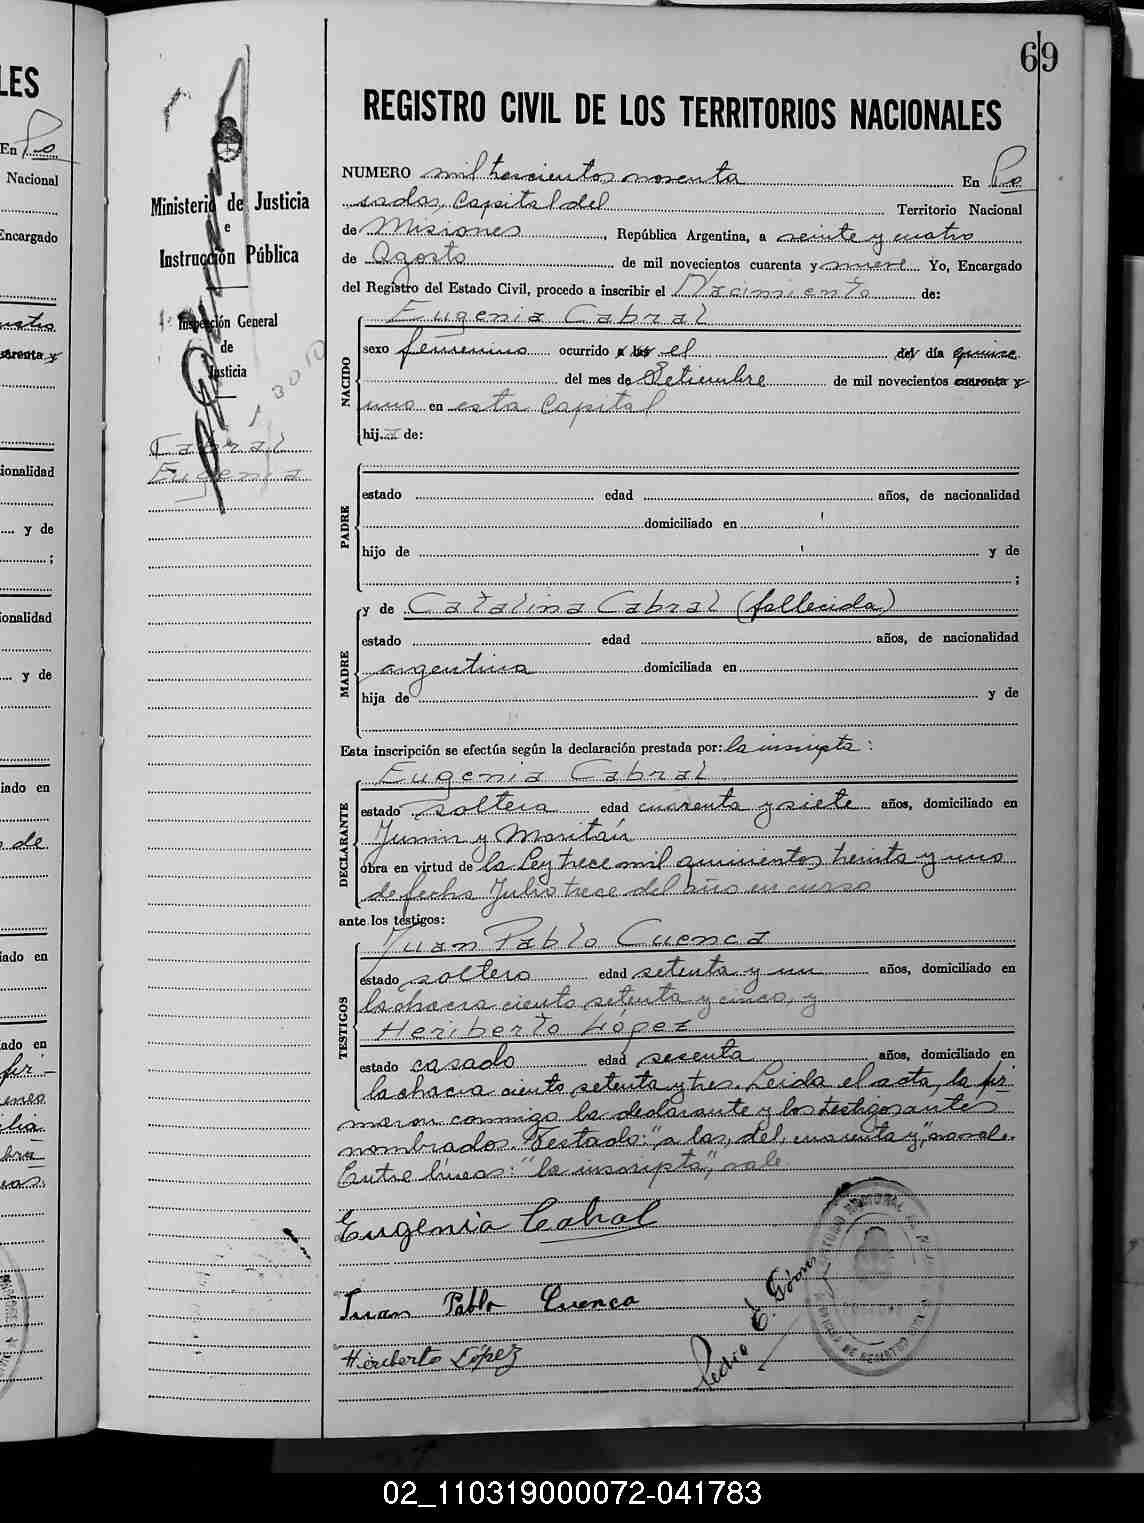 69
REGISTRO CIVIL DE LOS TERRITORIOS NACIONALES
NUMERO mil trescientos noventa En Po
sadas, Capital del Territorio Nacional
de Misiones, República Argentina, a veinte y cuatro
de Agosto de mil novecientos cuarenta y nueve Yo, Encargado
del Registro del Estado Civil, procedo a inscribir el Nacimiento de:
NACIDO
Eugenia Cabral
sexo femenino ocurrido a las el del día quince
del mes de Setiembre de mil novecientos cuarenta y
uno en esta Capital
hija de:
PADRE
estado edad años, de nacionalidad
domiciliado en
hijo de y de
;
MADRE
y de Catalina Cabral (fallecida)
estado edad años, de nacionalidad
argentina domiciliada en
hija de y de
Esta inscripción se efectúa según la declaración prestada por: la inscripta:
DECLARANTE
Eugenia Cabral
estado soltera edad cuarenta y siete años, domiciliado en
Junin y Moritán
obra en virtud de la Ley trece mil quinientos treinta y uno
de fecha Julio trece del año en curso
ante los testigos:
TESTIGOS
Juan Pablo Cuenca
estado soltero edad setenta y un años, domiciliado en
la chacra ciento setenta y cinco, y
Heriberto López
estado casado edad sesenta años, domiciliado en
la chacra ciento setenta y tres. Leida el acta, la fir
maron conmigo la declarante y los testigos antes
nombrados. Testado: "a las, del, cuarenta y", no vale.
Entre líneas: "la inscripta", vale.
Eugenia Cabral
Juan Pablo Cuenca
Heriberto López
Pedro E.
Ministerio de Justicia
e
Instrucción Pública
Inspección General
de
Justicia
Cabral
Eugenia
LES
En Po
Nacional
Encargado
cuarenta y
cionalidad
y de
;
ionalidad
y de
iado en
de
iado en
ado en
fir-
02_110319000072-041783